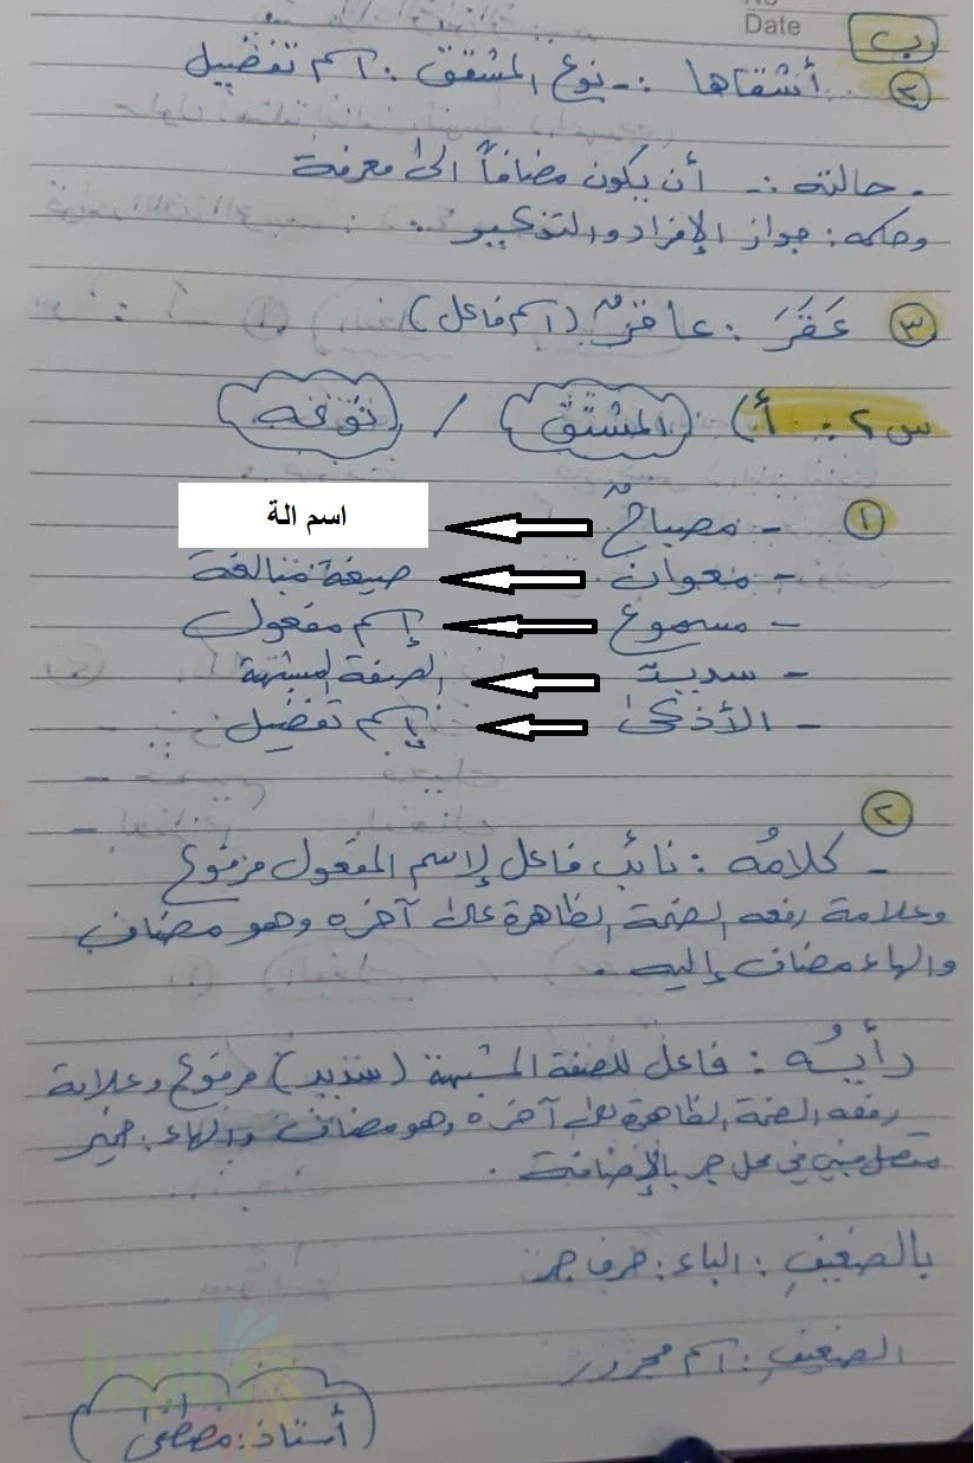 Date
ب
٢ أشقاها :- نوع المشقق : اسم تفضيل
- حالته :- أن يكون مضافاً الى معرفة
وحكمه : جواز الإفراد والتذكير .
٣ عَقَرَ : عاقرٌ (اسم فاعل)
س٢ : أ) المشتق / نوعه
١ - مصباحٌ اسم الة
- معوان صيغة مبالغة
- مسموع إسم مفعول
- سديد الصفة المشبهة
- الأذكى إسم تفضيل
٢
- كلامُه : نائب فاعل لإسم المفعول مرفوع
وعلامة رفعه الضمة الظاهرة على آخره وهو مضاف
والهاء مضاف إليه .
رأيُه : فاعل للصفة المشبهة (سديد) مرفوع وعلامة
رفعه الضمة الظاهرة على آخره وهو مضاف والهاء : ضمير
متصل مبني في محل جر بالإضافة .
بالضعيفِ : الباء : حرف جر
الضعيفِ : اسم مجرور
أستاذ : مصطفى